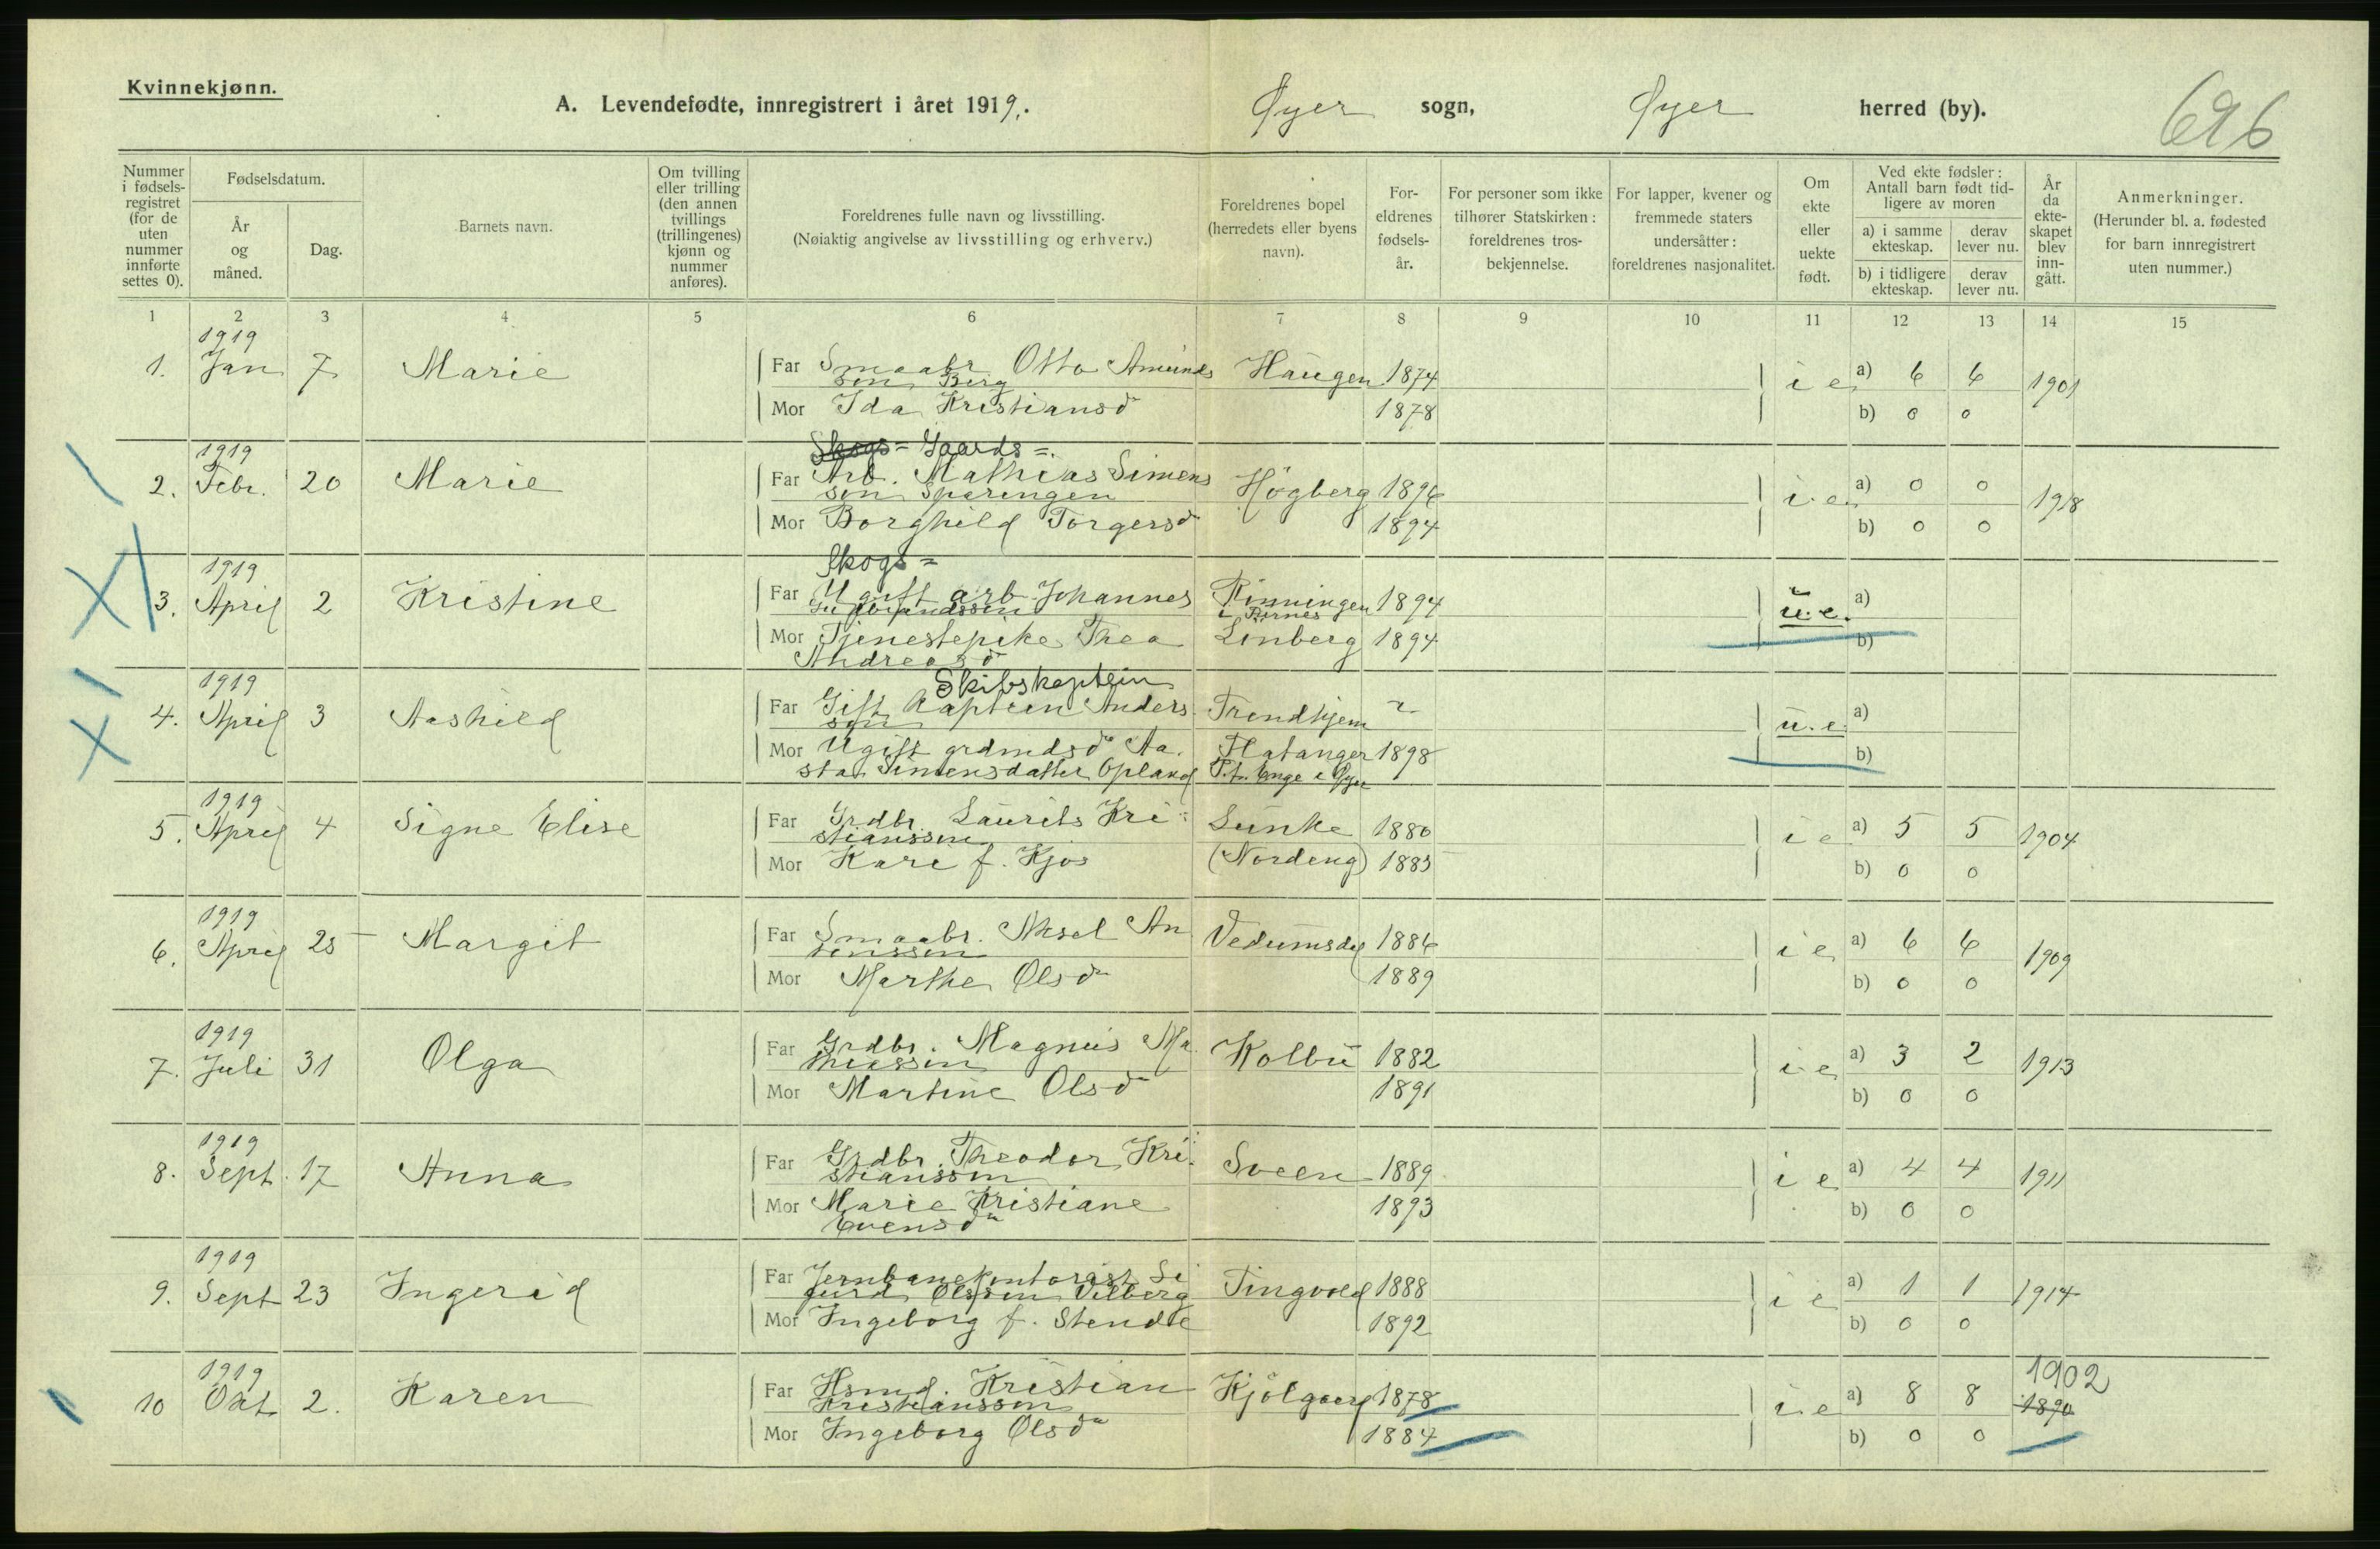 Kvinnekjønn.
A. Levendefødte, innregistrert i året 1919. Øyer sogn, Øyer herred (by). 696
Nummer i fødselsregistret (for de uten nummer innførte settes 0).
Fødselsdatum.
År og måned.
Dag.
Barnets navn.
Om tvilling eller trilling (den annen tvillings (trillingenes) kjønn og nummer anføres).
Foreldrenes fulle navn og livsstilling.
(Nøiaktig angivelse av livsstilling og erhverv.)
Foreldrenes bopel (herredets eller byens navn).
Foreldrenes fødselsår.
For personer som ikke tilhører Statskirken: foreldrenes trosbekjennelse.
For lapper, kvener og fremmede staters undersåtter: foreldrenes nasjonalitet.
Om ekte eller uekte født.
Ved ekte fødsler: Antall barn født tidligere av moren
a) i samme ekteskap. derav lever nu.
b) i tidligere ekteskap. derav lever nu.
År da ekteskapet blev inngått.
Anmerkninger.
(Herunder bl. a. fødested for barn innregistrert uten nummer.)
1 2 3 4 5 6 7 8 9 10 11 12 13 14 15
1919
1. Jan 7 Marie Far Smaabr. Otto Amunds Haugen 1874 i e a) 6 6 1901
son Berg
Mor Ida Kristiansd 1878 b) 0 0
Skogs= Gaards=
1919
2. Febr. 20 Marie Far Arb. Mathias Simens Högberg 1896 i.e. a) 0 0 1918
son Sparingen
Mor Borghild Torgersd 1894 b) 0 0
Skogs=
1919
3. April 2 Kristine Far Ugift arb. Johannes Rinningen 1894 u.e. a)
Mor Tjenestepike Thea Linberg 1894 b)
Andreasd
Skibskaptein
1919
4. April 3 Aashild Far Gift Kaptein Anders Trondhjem ? u.e. a)
son
Mor Ugift grdmdsd Aa. Flatanger 1898 b)
sta Simensdatter Opland P.t. Enge i Øyer
1919
5. April 4 Signe Elise Far Grdbr. Laurits Kri Lunke 1880 i e a) 5 5 1904
stianssen
Mor Kari f. Kjos (Nordeng) 1885 b) 0 0
1919
6. April 25 Margit Far Smaabr. Aksel An Vedumsdal 1886 i e a) 6 6 1909
tonssen
Mor Marthe Olsd 1889 b) 0 0
1919
7. Juli 31 Olga Far Grdbr. Magnus Ma Kolbu 1882 i e a) 3 2 1913
thiassen
Mor Martine Olsd 1891 b) 0 0
1919
8. Sept. 17 Anna Far Grdbr. Theodor Kri Sveen 1889 i e a) 4 4 1911
stianssen
Mor Marie Kristiane 1893 b) 0 0
Evensd
1919
9. Sept 23 Ingerid Far Jernbanekontorist Si Tingvold 1888 i e a) 1 1 1914
gurd Olssen Vilberg
Mor Ingeborg f. Stendte 1892 b) 0 0
1919 1902
10 Okt. 2. Karen Far Hsmd. Kristian 1878 i.e a) 8 8 1890
Kristianssen
Mor Ingeborg Olsd 1884 b) 0 0